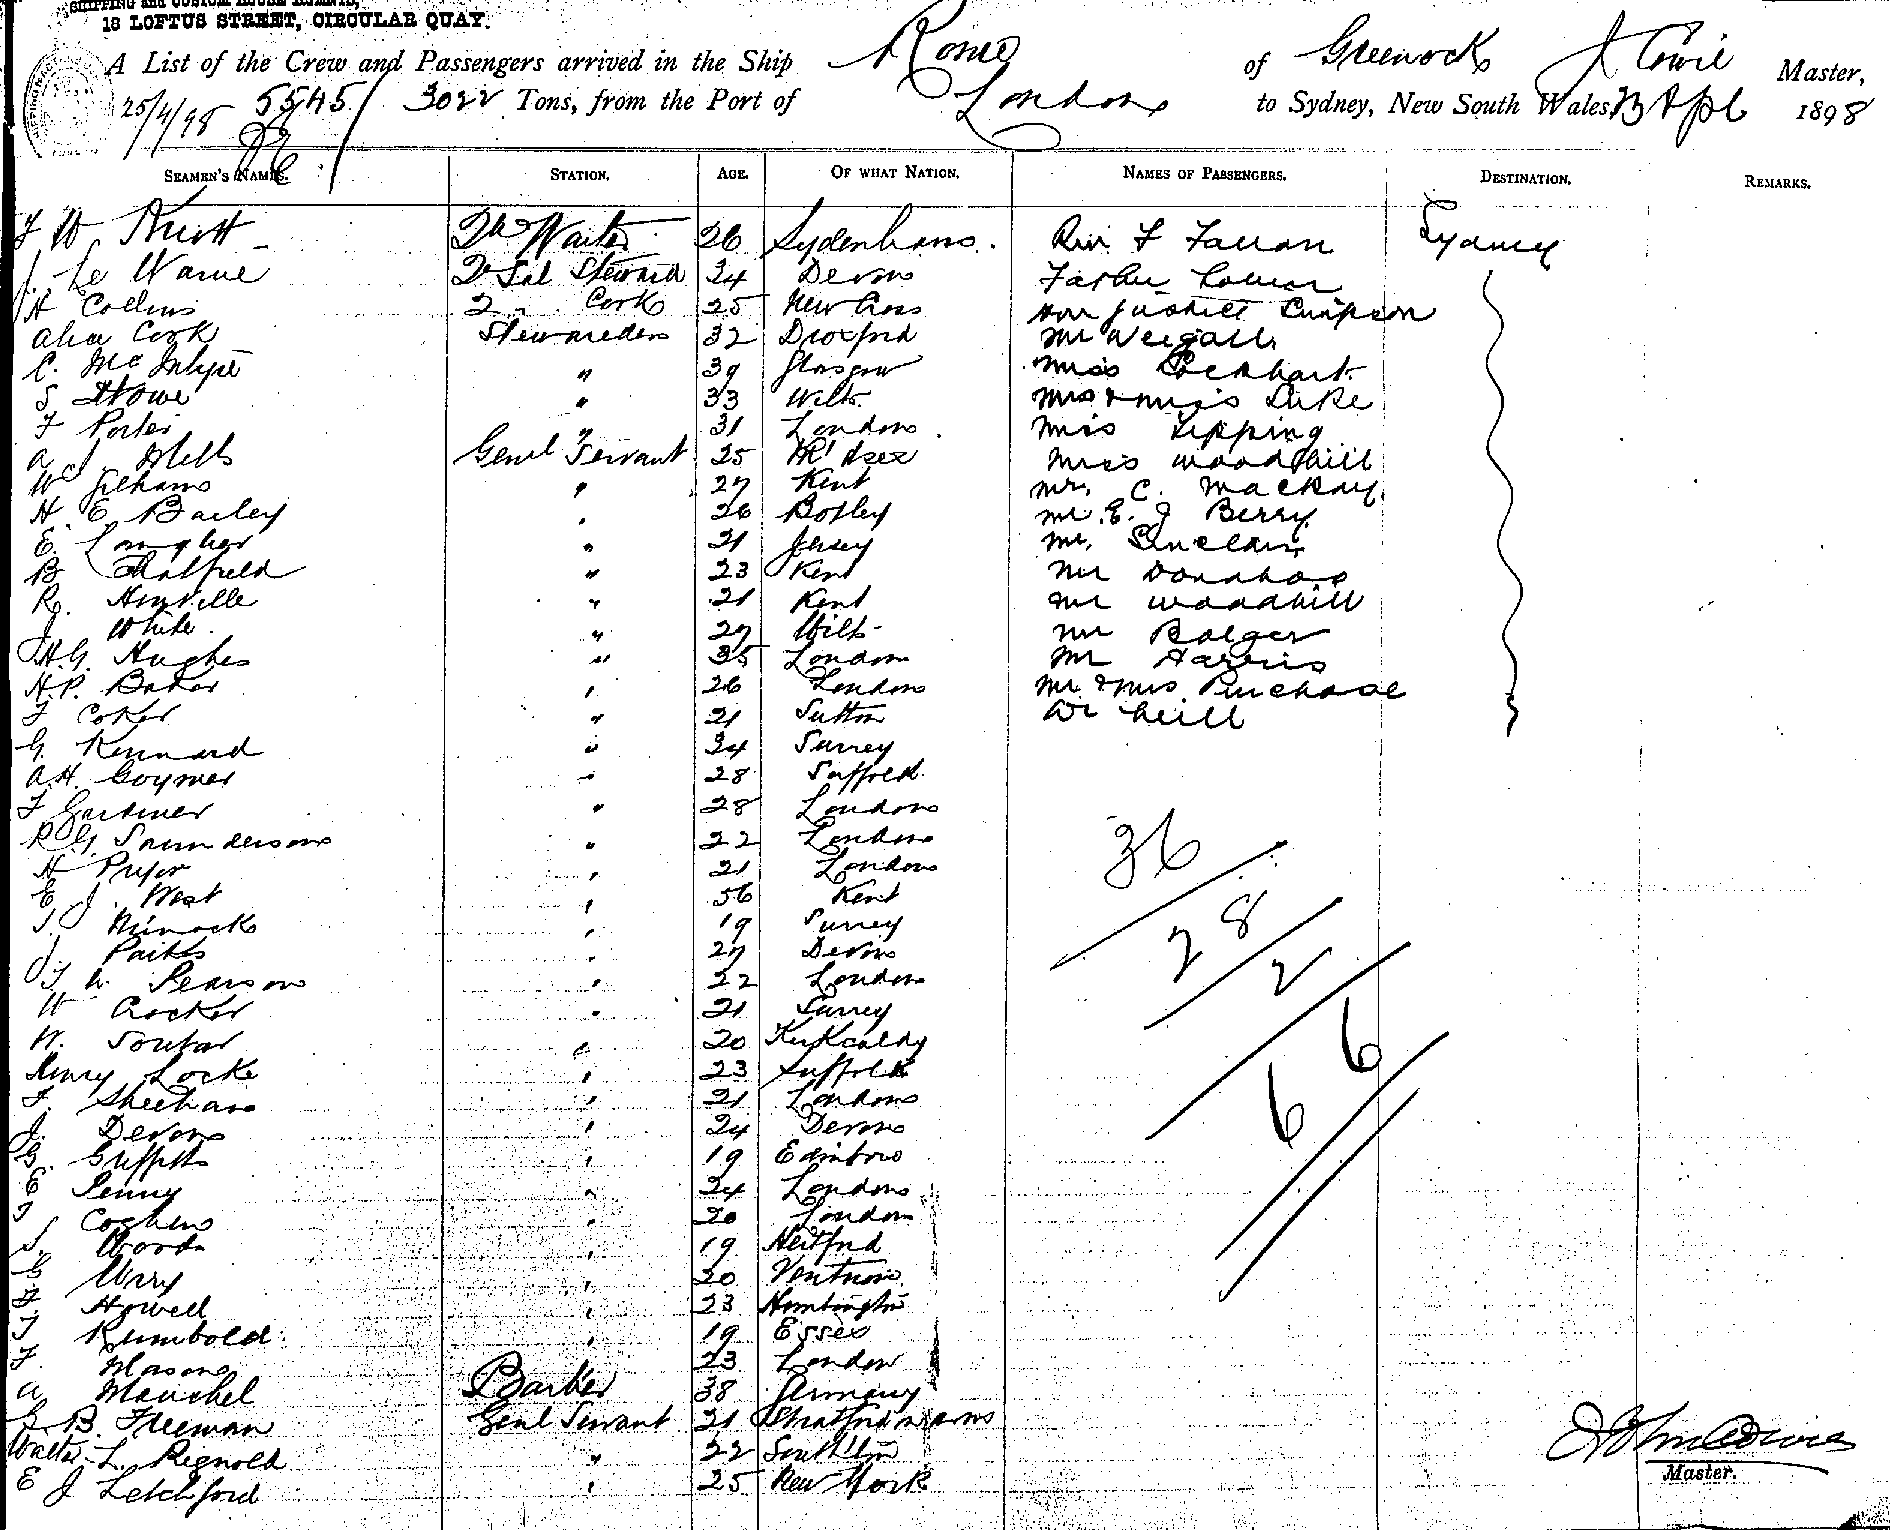 SHIPPING AND CUSTOM HOUSE AGENTS,
18 LOFTUS STREET, CIRCULAR QUAY.
A List of the Crew and Passengers arrived in the Ship Rome of Greenock J Cowie Master,
25/4/98 5545 / 3022 Tons, from the Port of London to Sydney, New South Wales 23 Apl 1898
SEAMEN'S NAMES. STATION. AGE. OF WHAT NATION. NAMES OF PASSENGERS. DESTINATION. REMARKS.
F W Knott Waiter 26 Sydenham. Rev F Farran Sydney
J. Le Warne 2 Sal Steward 34 Devon Father
H Collins 2 " Cook 25 New Cross Hon Justice Simpson
Alice Cook Stewardess 32 Droxford Mr Weigall
C. McIntyre " 39 Glasgow Miss Lockhart
S Howe " 33 Wilts. Mrs & Miss Duke
F Porter " 31 London. Miss Tipping
A J Mills Genl Servant 25 Miss Woodhill
W Gilhams " 27 Kent Mr. C. Mackay
H. E Bailey " 26 Botley Mr. E. J Berry
E. " 21 Jersey Mr. Sinclair
B Hatfield " 23 Kent Mr Donahoe
R. " 21 Kent Mr Woodhill
J White " 27 Wilts Mr Bolger
H.G. Hughes " 35 London Mr Harris
H.P. Baker " 26 London Mr & Mrs Purchase
F Coker " 21 Sutton Dr Neill
G. Kennard " 34 Surrey
A.H. Goymer " 28 Suffolk
F Gardiner " 28 London
R.G. Saunderson " 22 London 36
H Pryor " 21 London
E J. West " 56 Kent 28
S. " 19 Surrey
J. " 27 Devon 2
F W. Pearson " 22 London
W Crocker " 21 Surrey 6
W. Soutar " 20 Kirkcaldy
Henry Locke " 23 Suffolk 6
F. Sheehan " 21 London
J. Devon " 24 Devon
G. Griffiths " 19 Edinboro
E Penny " 24 London
F Coghen " 20 London
S. Woods " 19 Hertford
G Urry " 20 Ventnor
F. Howell " 23 Huntington
F Rumbold " 19 Essex
F. Mason " 23 London
A Manchel Barber 38 Germany
J. B. Freeman Genl Servant 21 Stratford
Walter L. Reynolds " 22 South'ton
E J Letchford " 25 New York
John Cowie
Master.